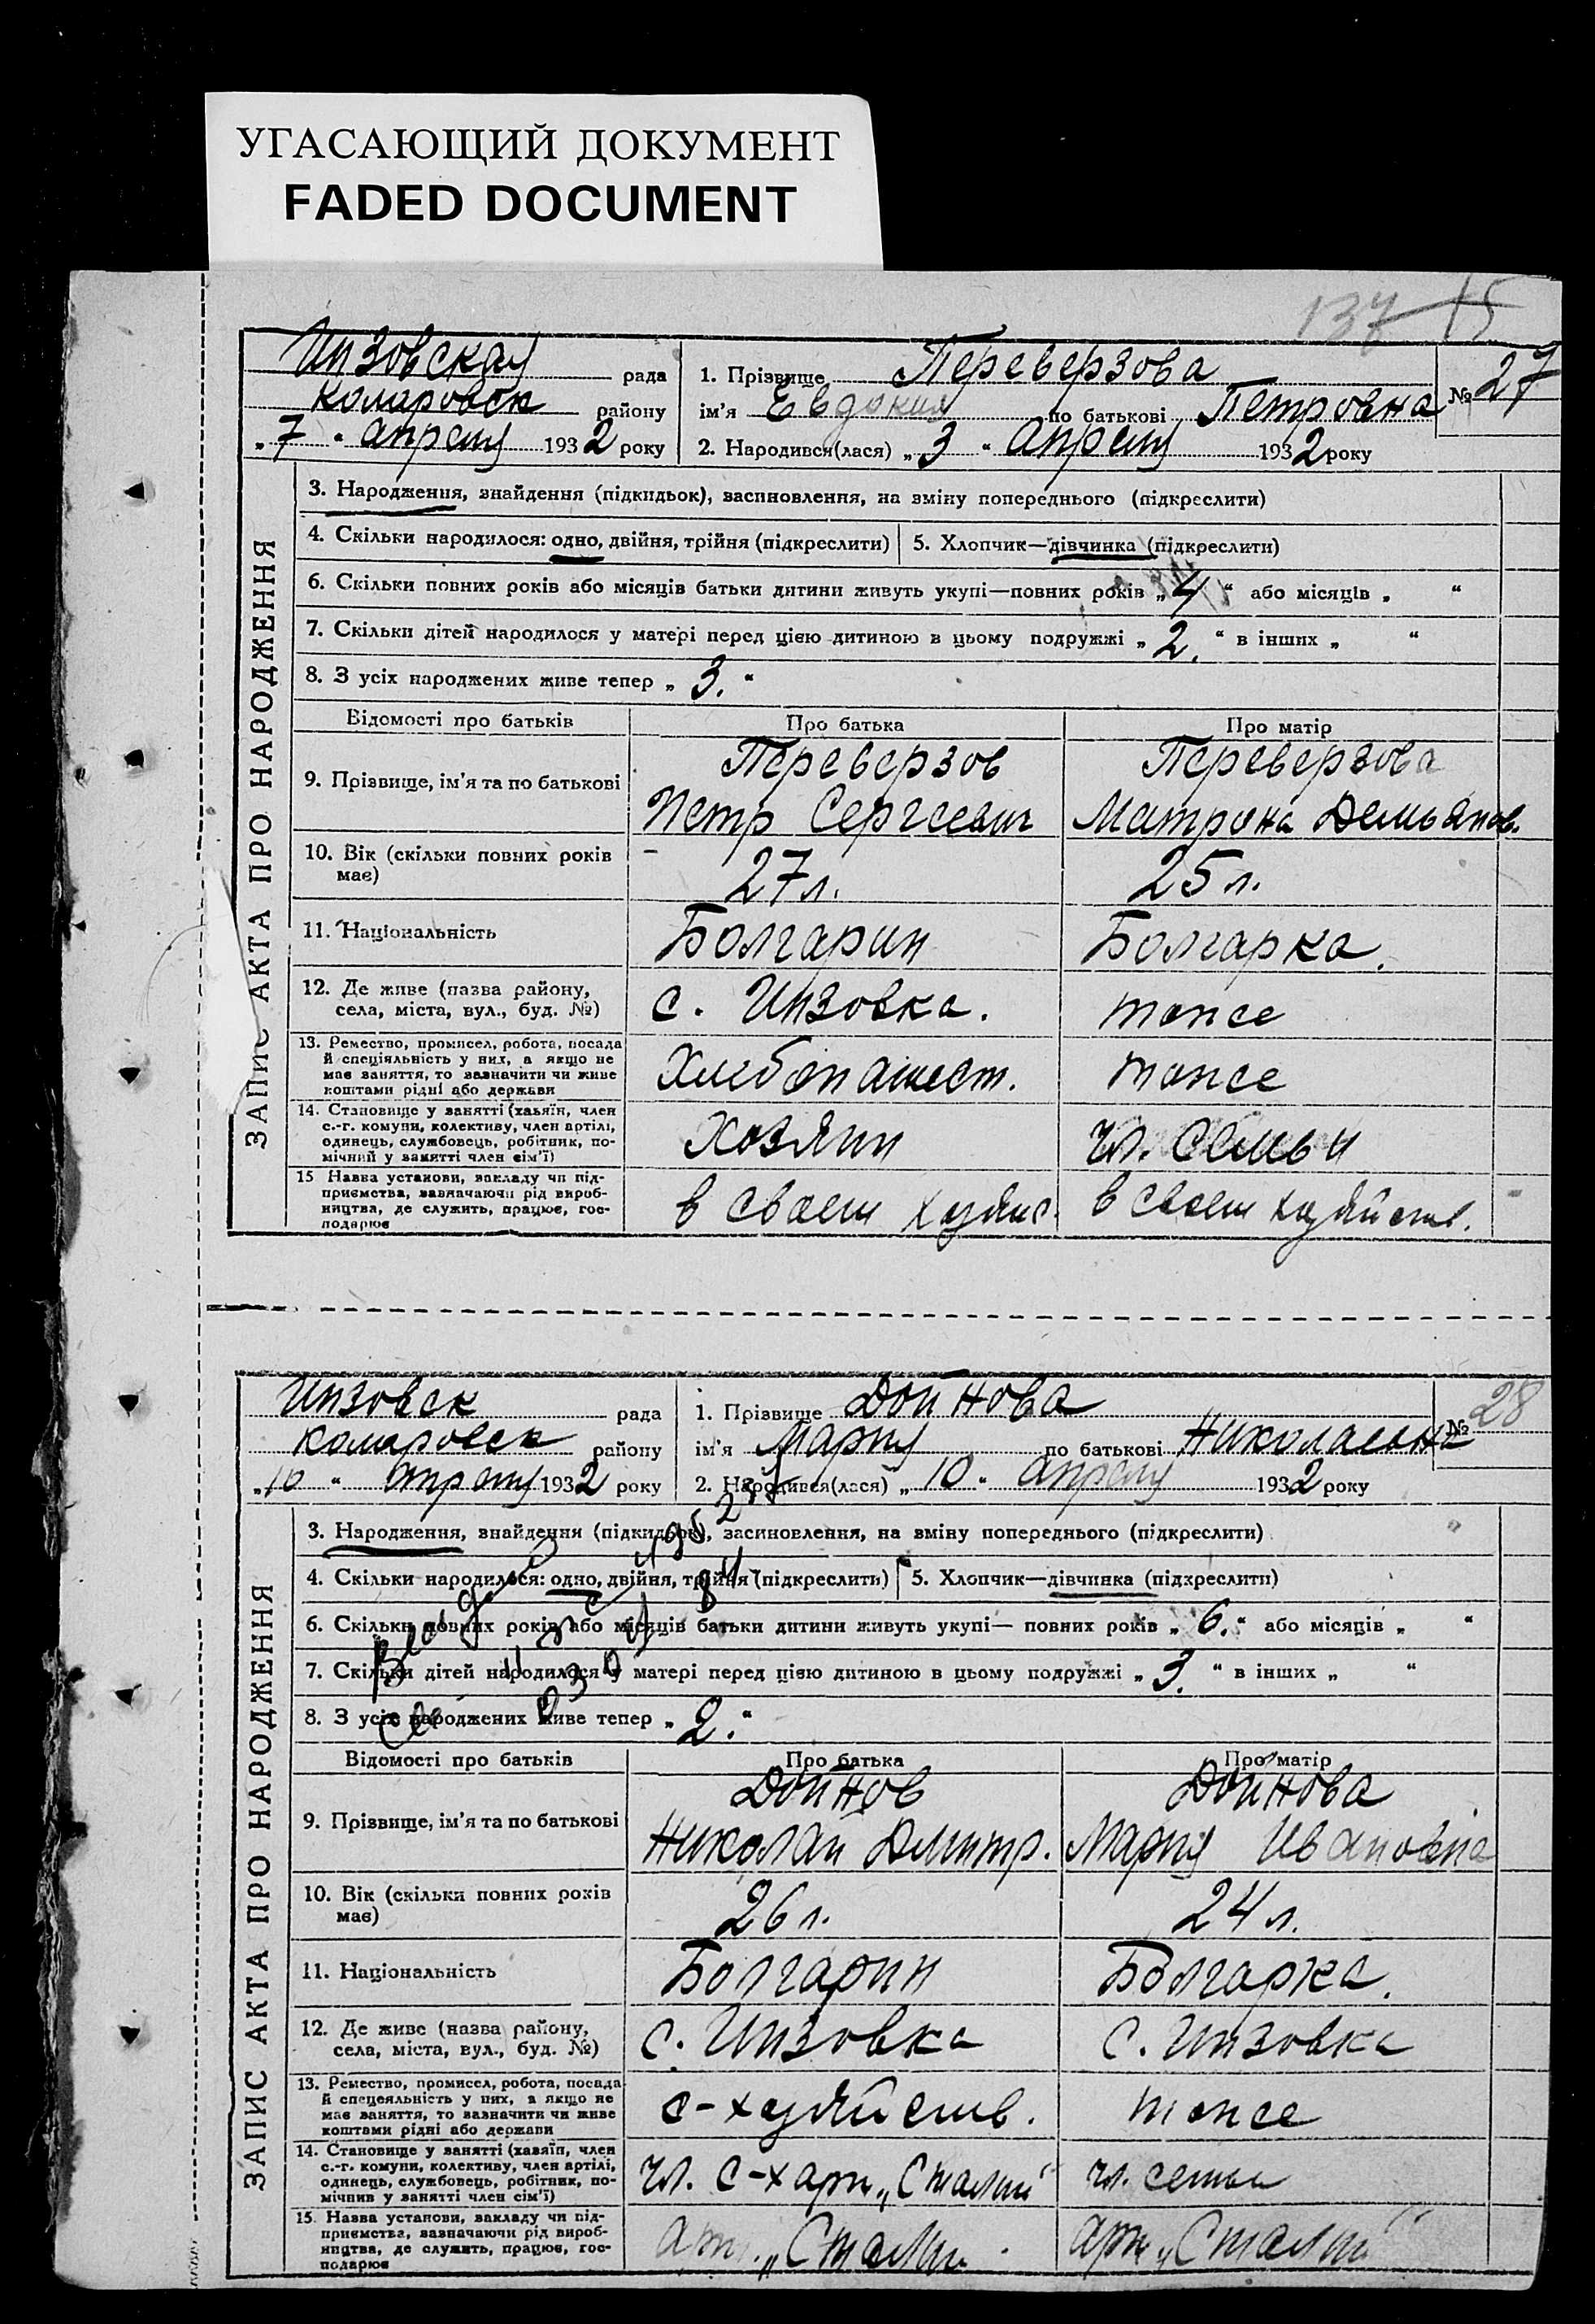 УГАСАЮЩИЙ ДОКУМЕНТ
FADED DOCUMENT
137 15
Инзовская рада
Коларовск району
„7 " апреля 1932 року
1. Прізвище Переверзова
ім'я Евдокия по батькові Петровна
№ 27
2. Народився(лася) „3 " Апреля 1932 року
ЗАПИС АКТА ПРО НАРОДЖЕННЯ
3. Народження, знайдення (підкидьок), засиновлення, на зміну попереднього (підкреслити)
4. Скільки народилося: одно, двійня, трійня (підкреслити) 5. Хлопчик—дівчинка (підкреслити)
6. Скільки повних років або місяців батьки дитини живуть укупі—повних років „ 4 " або місяців „ "
7. Скільки дітей народилося у матері перед цією дитиною в цьому подружжі „ 2. " в інших „ "
8. З усіх народжених живе тепер „ 3. "
Відомості про батьків Про батька Про матір
9. Прізвище, ім'я та по батькові
Переверзов Переверзова
Петр Сергеевич Матрона Демьянов.
10. Вік (скільки повних років має) 27 л. 25 л.
11. Національність Болгарин Болгарка.
12. Де живе (назва району, села, міста, вул., буд. №) с. Инзовка. тоже
13. Ремество, промисел, робота, посада
й спеціяльність у них, а якщо не
має заняття, то зазначити чи живе
коштами рідні або держави
Хлебопашест. тоже
14. Становище у занятті (хазяїн, член
с.-г. комуни, колективу, член артілі,
одинець, службовець, робітник, по-
мічний у занятті член сім'ї)
Хозяин чл. семьи
15 Назва установи, закладу чи під-
приємства, зазначаючи рід вироб-
ництва, де служить, працює, гос-
подарює
в своем хозяйс. в своем хозяйств.
Инзовск рада
Коларовск району
„10 " апреля 1932 року
1. Прізвище Дойнова
ім'я Мария по батькові Николаевна
№ 28
2. Народився(лася) „ 10 " апреля 1932 року
ЗАПИС АКТА ПРО НАРОДЖЕННЯ
3. Народження, знайдення (підкидьок), засиновлення, на зміну попереднього (підкреслити)
4. Скільки народилося: одно, двійня, трійня (підкреслити) 5. Хлопчик—дівчинка (підкреслити)
6. Скільки повних років або місяців батьки дитини живуть укупі— повних років „ 6. " або місяців „ "
7. Скільки дітей народилося у матері перед цією дитиною в цьому подружжі „ 3. " в інших „ "
8. З усіх народжених живе тепер „ 2. "
Відомості про батьків Про батька Про матір
9. Прізвище, ім'я та по батькові
Дойнов Дойнова
Николай Дмитр. Мария Ивановна
10. Вік (скільки повних років має) 26 л. 24 л.
11. Національність Болгарин Болгарка.
12. Де живе (назва району, села, міста, вул., буд. №) с. Инзовка с. Инзовка
13. Ремество, промисел, робота, посада
й спецеяльність у них, а якщо не
має заняття, то зазначити чи живе
коштами рідні або держави
с-хозяйств. тоже
14. Становище у занятті (хазяїн, член
с.-г. комуни, колективу, член артілі,
одинець, службовець, робітник, по-
мічнив у занятті член сім'ї)
чл. с-х арт. „Сталин" чл. семьи
15. Назва установи, закладу чи під-
приємства, зазначаючи рід вироб-
ництва, де служить, працює, гос-
подарює
арт. „Сталин арт. „Сталин"